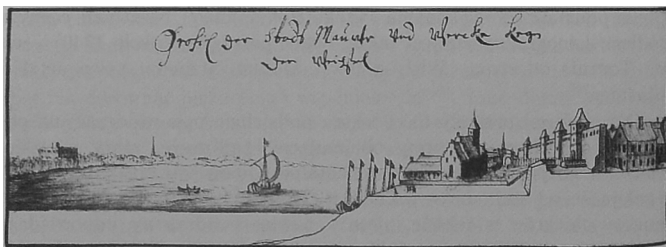 Profil der Stadt Mauwre Vnd Wercke kegn
der Weichsel